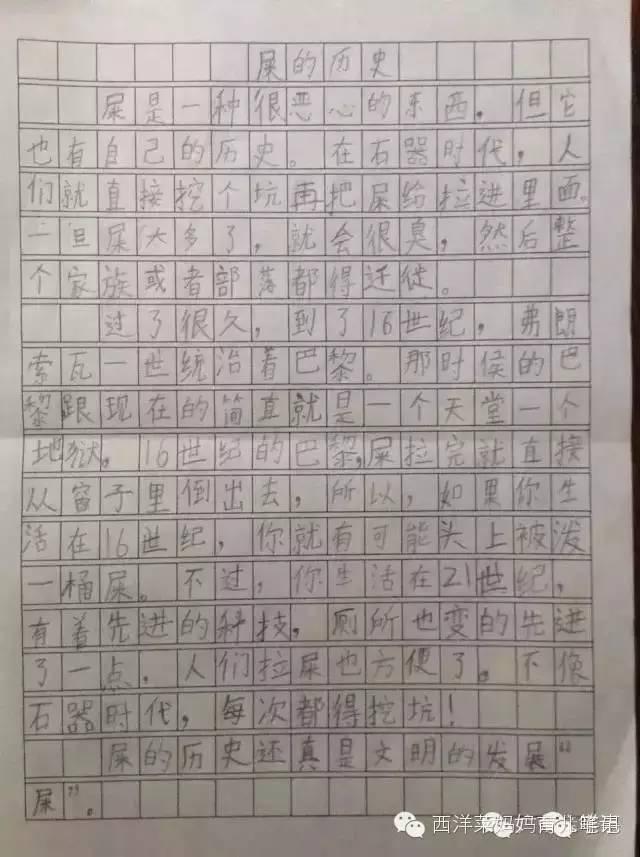 屎的历史
屎是一种很恶心的东西。但它
也有自己的历史。在石器时代，人
们就直接挖个坑再把屎给拉进里面。
一旦屎太多了，就会很臭，然后整
个家族或者部落都得迁徙。
过了很久，到了16世纪，弗朗
索瓦一世统治着巴黎。那时侯的巴
黎跟现在的简直就是一个天堂一个
地狱。16世纪的巴黎，屎拉完就直接
从窗子里倒出去，所以，如果你生
活在16世纪，你就有可能头上被泼
一桶屎。不过，你生活在21世纪，
有着先进的科技，厕所也变的先进
了一点，人们拉屎也方便了。不像
石器时代，每次都得挖坑！
屎的历史还真是文明的发展“
屎”。
西洋菜妈妈育儿